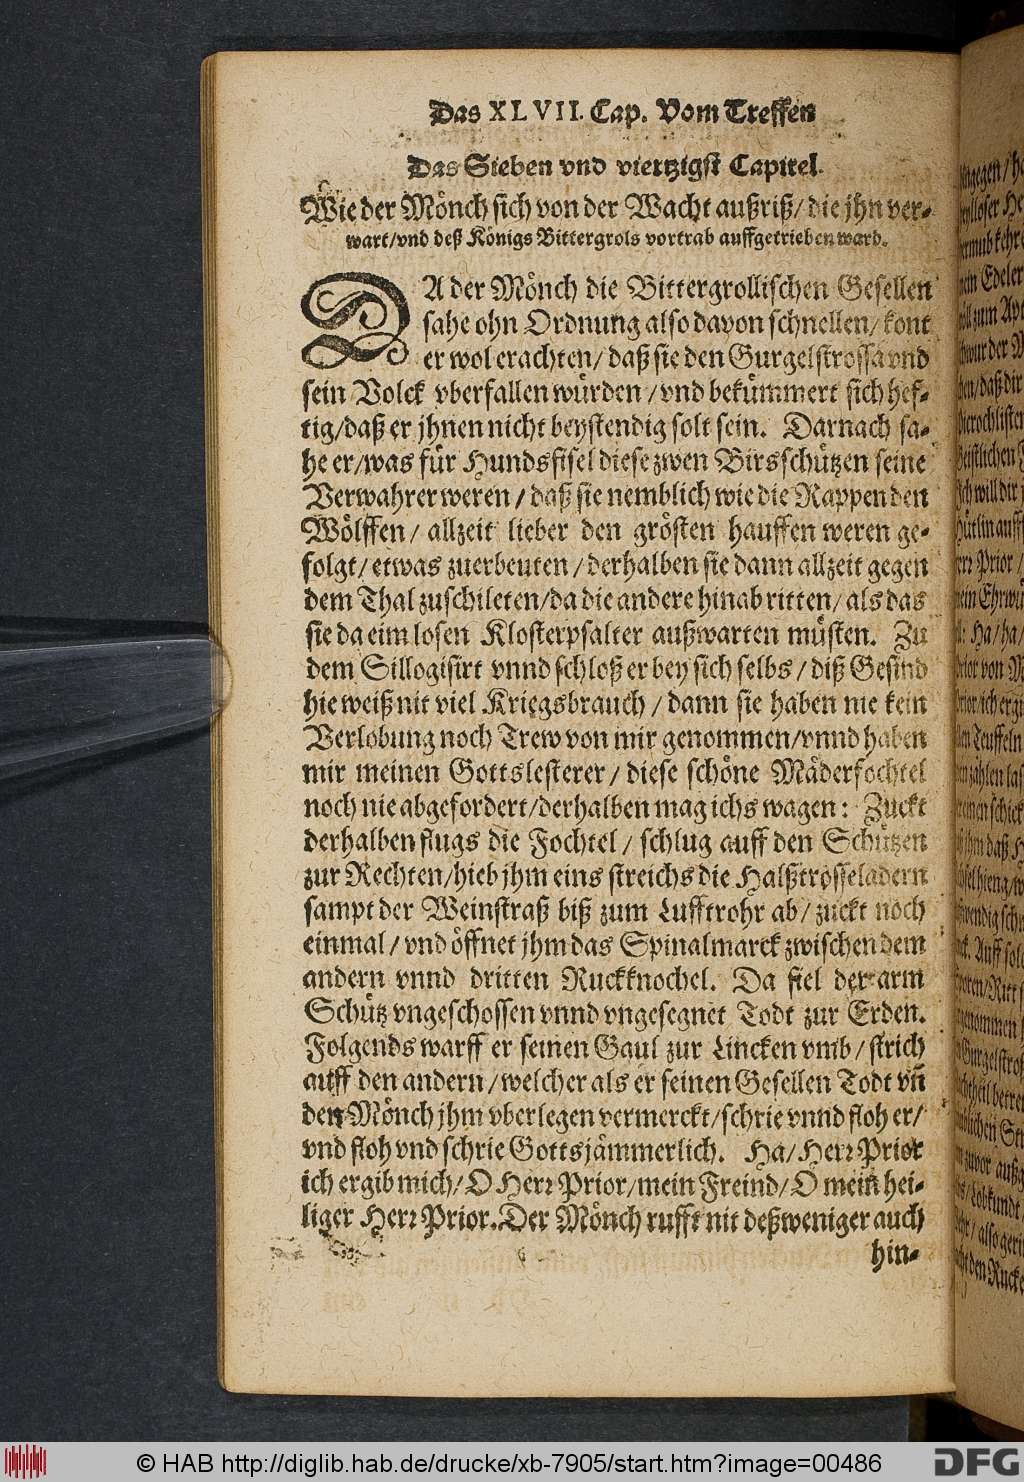 Das XLVII. Cap. Vom Treffen
Das Sieben vnd viertzigst Capitel.
Wie der Mönch sich von der Wacht außriß/ die jhn ver-
wart/vnd deß Königs Bittergrols vortrab auffgetrieben ward.
DA der Mönch die Bittergrollischen Gesellen
sahe ohn Ordnung also davon schnellen/ kont
er wol erachten/ daß sie den Gurgelstrossa vnd
sein Volck vberfallen würden / vnd bekümmert sich hef-
tig/daß er jhnen nicht beystendig solt sein. Darnach sa-
he er/was für Hundsfisel diese zwen Birsschützen seine
Verwahrer weren / daß sie nemblich wie die Rappen den
Wölffen/ allzeit lieber den grösten hauffen weren ge-
folgt/ etwas zuerbeuten / derhalben sie dann allzeit gegen
dem Thal zuschileten/da die andere hinab ritten/ als das
sie da eim losen Klosterpsalter außwarten müsten. Zu
dem Sillogisirt vnnd schloß er bey sich selbs / diß Gesind
hie weiß nit viel Kriegsbrauch / dann sie haben nie kein
Verlobung noch Trew von mir genommen/vnnd haben
mir meinen Gottslesterer / diese schöne Mäderfochtel
noch nie abgefordert/derhalben mag ichs wagen: Zuckt
derhalben flugs die Fochtel / schlug auff den Schützen
zur Rechten/hieb jhm eins streichs die Halßtrosseladern
sampt der Weinstraß biß zum Lufftrohr ab/ zuckt noch
einmal / vnd öffnet jhm das Spinalmarck zwischen dem
andern vnnd dritten Ruckknochel. Da fiel der arm
Schütz vngeschossen vnnd vngesegnet Todt zur Erden.
Folgends warff er seinen Gaul zur Lincken vmb/ strich
auff den andern/welcher als er seinen Gesellen Todt vñ
den Mönch jhm vberlegen vermerckt/schrie vnnd floh er/
vnd floh vnd schrie Gottsjämmerlich. Ha/ Herr Prior
ich ergib mich/ O Herr Prior/mein Freind/ O mein hei-
liger Herr Prior. Der Mönch rufft nit deßweniger auch
hin-
© HAB http://diglib.hab.de/drucke/xb-7905/start.htm?image=00486
DFG